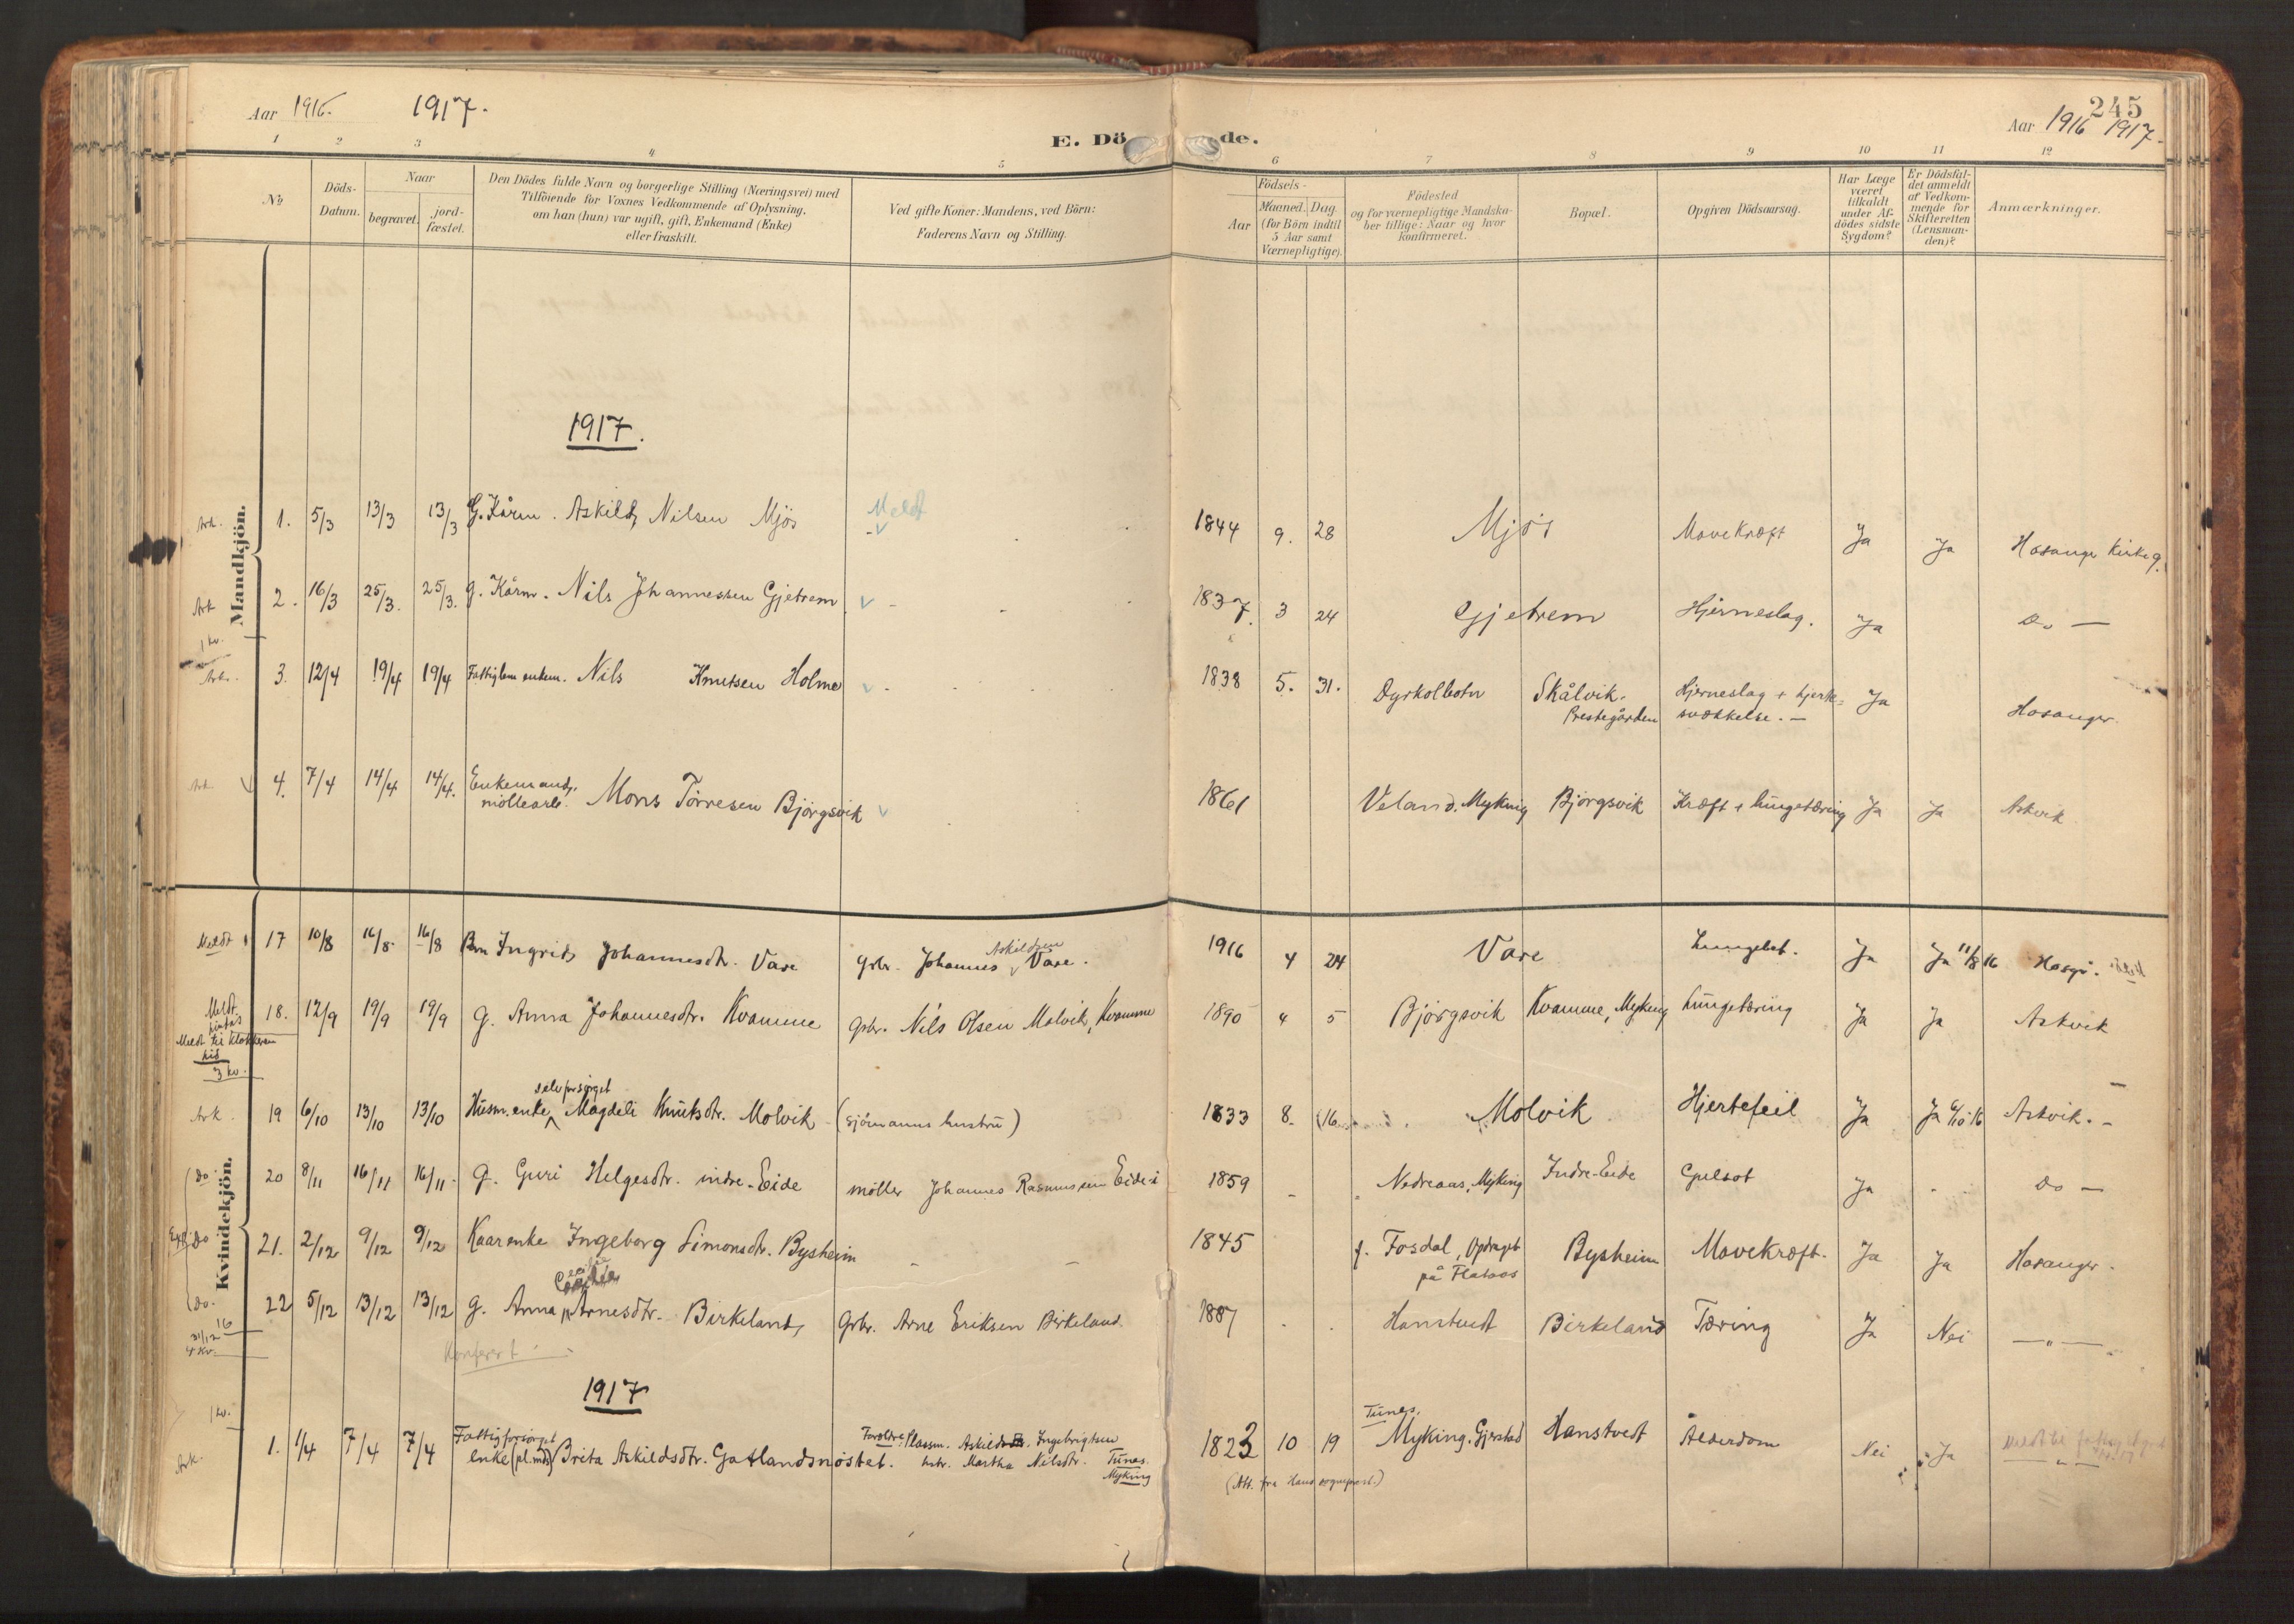 Aar 1916. 1917.
E. Dö de.
245
Aar 1916 1917.
1 2 3 4 5 6 7 8 9 10 11 12
No
Döds-
Datum.
Naar
begravet.
jord-
fæstet.
Den Dödes fulde Navn og borgerlige Stilling (Næringsvei) med
Tilföiende for Voxnes Vedkommende af Oplysning,
om han (hun) var ugift, gift, Enkemand (Enke)
eller fraskilt.
Ved gifte Koner: Mandens, ved Börn:
Faderens Navn og Stilling.
Födsels-
Aar
Maaned. Dag.
(for Börn indtil
5 Aar samt
Værnepligtige).
Födested
og for værnepligtige Mandska-
ber tillige: Naar og hvor
konfirmeret.
Bopæl.
Opgiven Dödsaarsag.
Har Læge
været
tilkaldt
under Af-
dödes sidste
Sygdom?
Er Dödsfal-
det anmeldt
af Vedkom-
mende for
Skifteretten
(Lensman-
den)?
Anmærkninger.
Mandkjön.
1917.
Ark. 1. 5/3 13/3 13/3 G. Kårm. Askild Nilsen Mjös Meldt 1844 9. 28 Mjös Mavekræft Ja Ja Hosanger Kirkeg.
Ark 2. 16/3 25/3. 25/3. g. Kårm. Nils Johannessen Gjetrem 1837. 3 24 Gjetrem Hjerneslag. Ja Do —
1 kv.
Ark. 3. 12/4 19/4 19/4 Fattiglem enkem. Nils Knutsen Holme 1838 5. 31. Dyrkolbotn Skålvik. Hjerneslag + hjerte= Ja
Prestegården svækkelse. — Hosanger.
Ark 4. 7/4 14/4 14/4. Enkemand,
möllearb. Mons Törresen Björgsvik 1861 Veland. Myking Björgsvik Kræft + lungetæring Ja Ja Askvik
Kvindekjön.
Meldt 17 10/8 16/8 16/8 Barn Ingrid Johannesdtr. Vare Gbr. Johannes Askildsen Vare. 1916 4 24 Vare Lungebet. Ja Ja 11/8 16 Hosgr.
Meldt 18. 12/9 19/9 19/9 g. Anna Johannesdtr. Kvamme Gbr. Nils Olsen Molvik, Kvamme 1890 4 5 Björgsvik Kvamme, Myking Lungetæring Ja Ja Askvik
Meldt til Klokkeren
hid
3 kv.
selvforsörget
Ark. 19 6/10 13/10 13/10 Husm. enke Magdeli Knutsdtr. Molvik (sjömanns hustru) 1833 8. 16 Molvik Hjertefeil Ja Ja 6/10 16 Askvik. —
Do 20 8/11 16/11 16/11. g. Guri Helgesdtr. indre-Eide möller Johannes Rasmussen Eide i 1859 - Nedreaas, Myking Indre-Eide Gulsot Ja Do —
Do 21. 2/12 9/12 9/12 Kaarenke Ingeborg Simonsdtr. Bysheim 1845 f. Fosdal, Opdraget Bysheim Mavekræft. Ja Ja Hosanger.
på Flatøos
Do. 22 5/12 13/12 13/12 g. Anna Arnesdtr. Birkeland, Gbr. Arne Eriksen Birkeland 1887 Hanstvedt Birkeland Tæring Ja Nei — " —
31/12 16
4 kv.
Konferert
1917
1 kv.
Ark. 1. 1/4 7/4 7/4 Fattigforsörget
enke (pl.mds) Brita Askildsdtr. Gatlandsnöstet. Foreldre: Plassm. Askild Ingebrigtsen
hstr. Martha Nilsdtr. Tunes.
Myking
1823 10 19 Tunes,
Myking. Gjerstad Hanstvedt Alderdom Nei Ja
(Att. fra Haus sogneprest.)